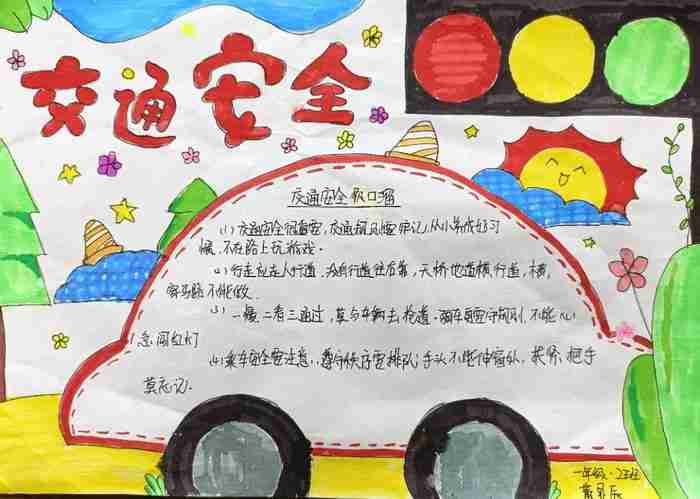 交通安全
交通安全顺口溜
(1) 交通安全很重要,交通规则要牢记,从小养成好习
惯,不在路上玩游戏。
(2) 行走应走人行道,没有行道往右靠,天桥地道横行道,横
穿马路不能做.
(3) 一慢、二看三通过,莫与车辆去抢道。骑车更要守规则,不能心
急闯红灯
(4) 乘车安全要注意,遵守秩序要排队;手头不能伸窗外,扶紧把手
莫忘记.
一年级·2班